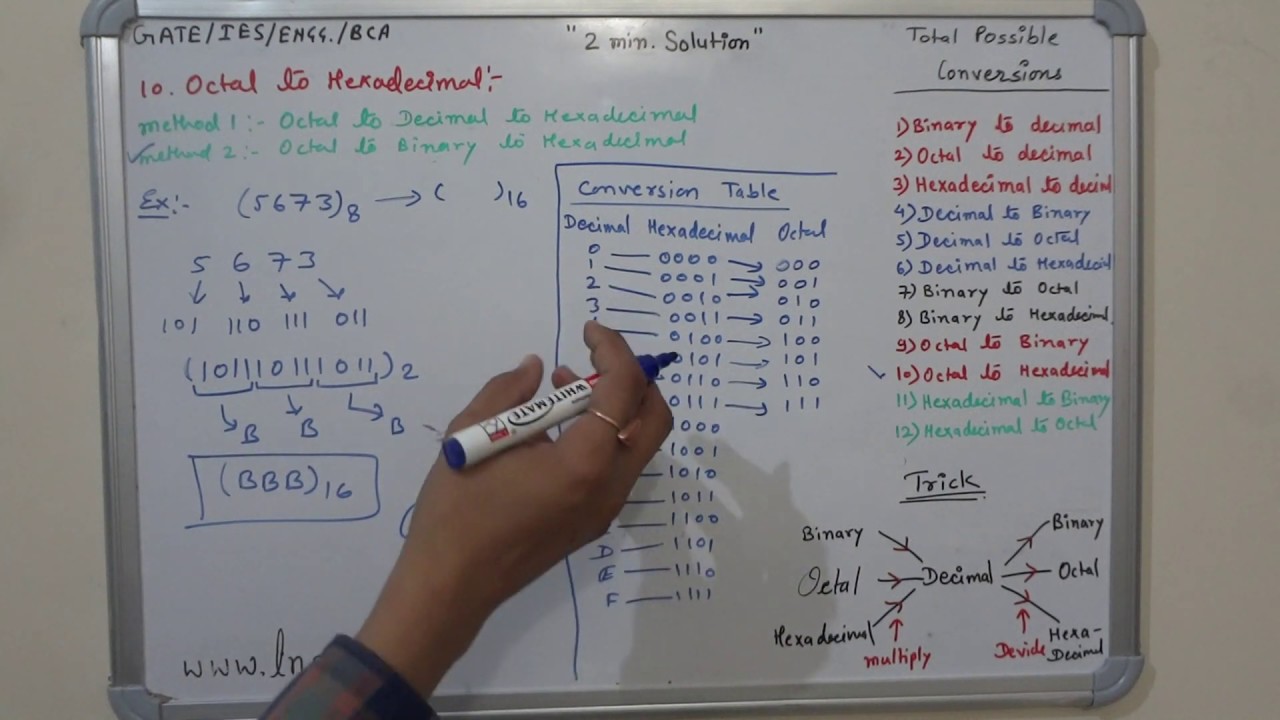 GATE/IES/ENGG./BCA
"2 min. Solution"
10. Octal to Hexadecimal:-
method 1:- Octal to Decimal to Hexadecimal
✓method 2:- Octal to Binary to Hexadecimal
Ex:- (5673)8 → ( )16
5 6 7 3
↓ ↓ ↓ ↓
101 110 111 011
(101110111011)2
→B →B →B
(BBB)16
www.ln
Conversion Table
Decimal Hexadecimal Octal
0 — 0000 → 000
1 — 0001 → 001
2 — 0010 → 010
3 — 0011 → 011
— 0100 → 100
0101 → 101
0110 → 110
0111 → 111
1000
1001
— 1010
— 1011
— 1100
D — 1101
E — 1110
F — 1111
WHITEMATE
Total Possible
Conversions
1) Binary to decimal
2) Octal to decimal
3) Hexadecimal to decim
4) Decimal to Binary
5) Decimal to Octal
6) Decimal to Hexadecim
7) Binary to Octal
8) Binary to Hexadecimal
9) Octal to Binary
✓ 10) Octal to Hexadecimal
11) Hexadecimal to Binary
12) Hexadecimal to Octal
Trick
Binary → Decimal → Binary
Octal → Decimal → Octal
Hexadecimal → Decimal → Hexa-
Decimal
multiply Devide